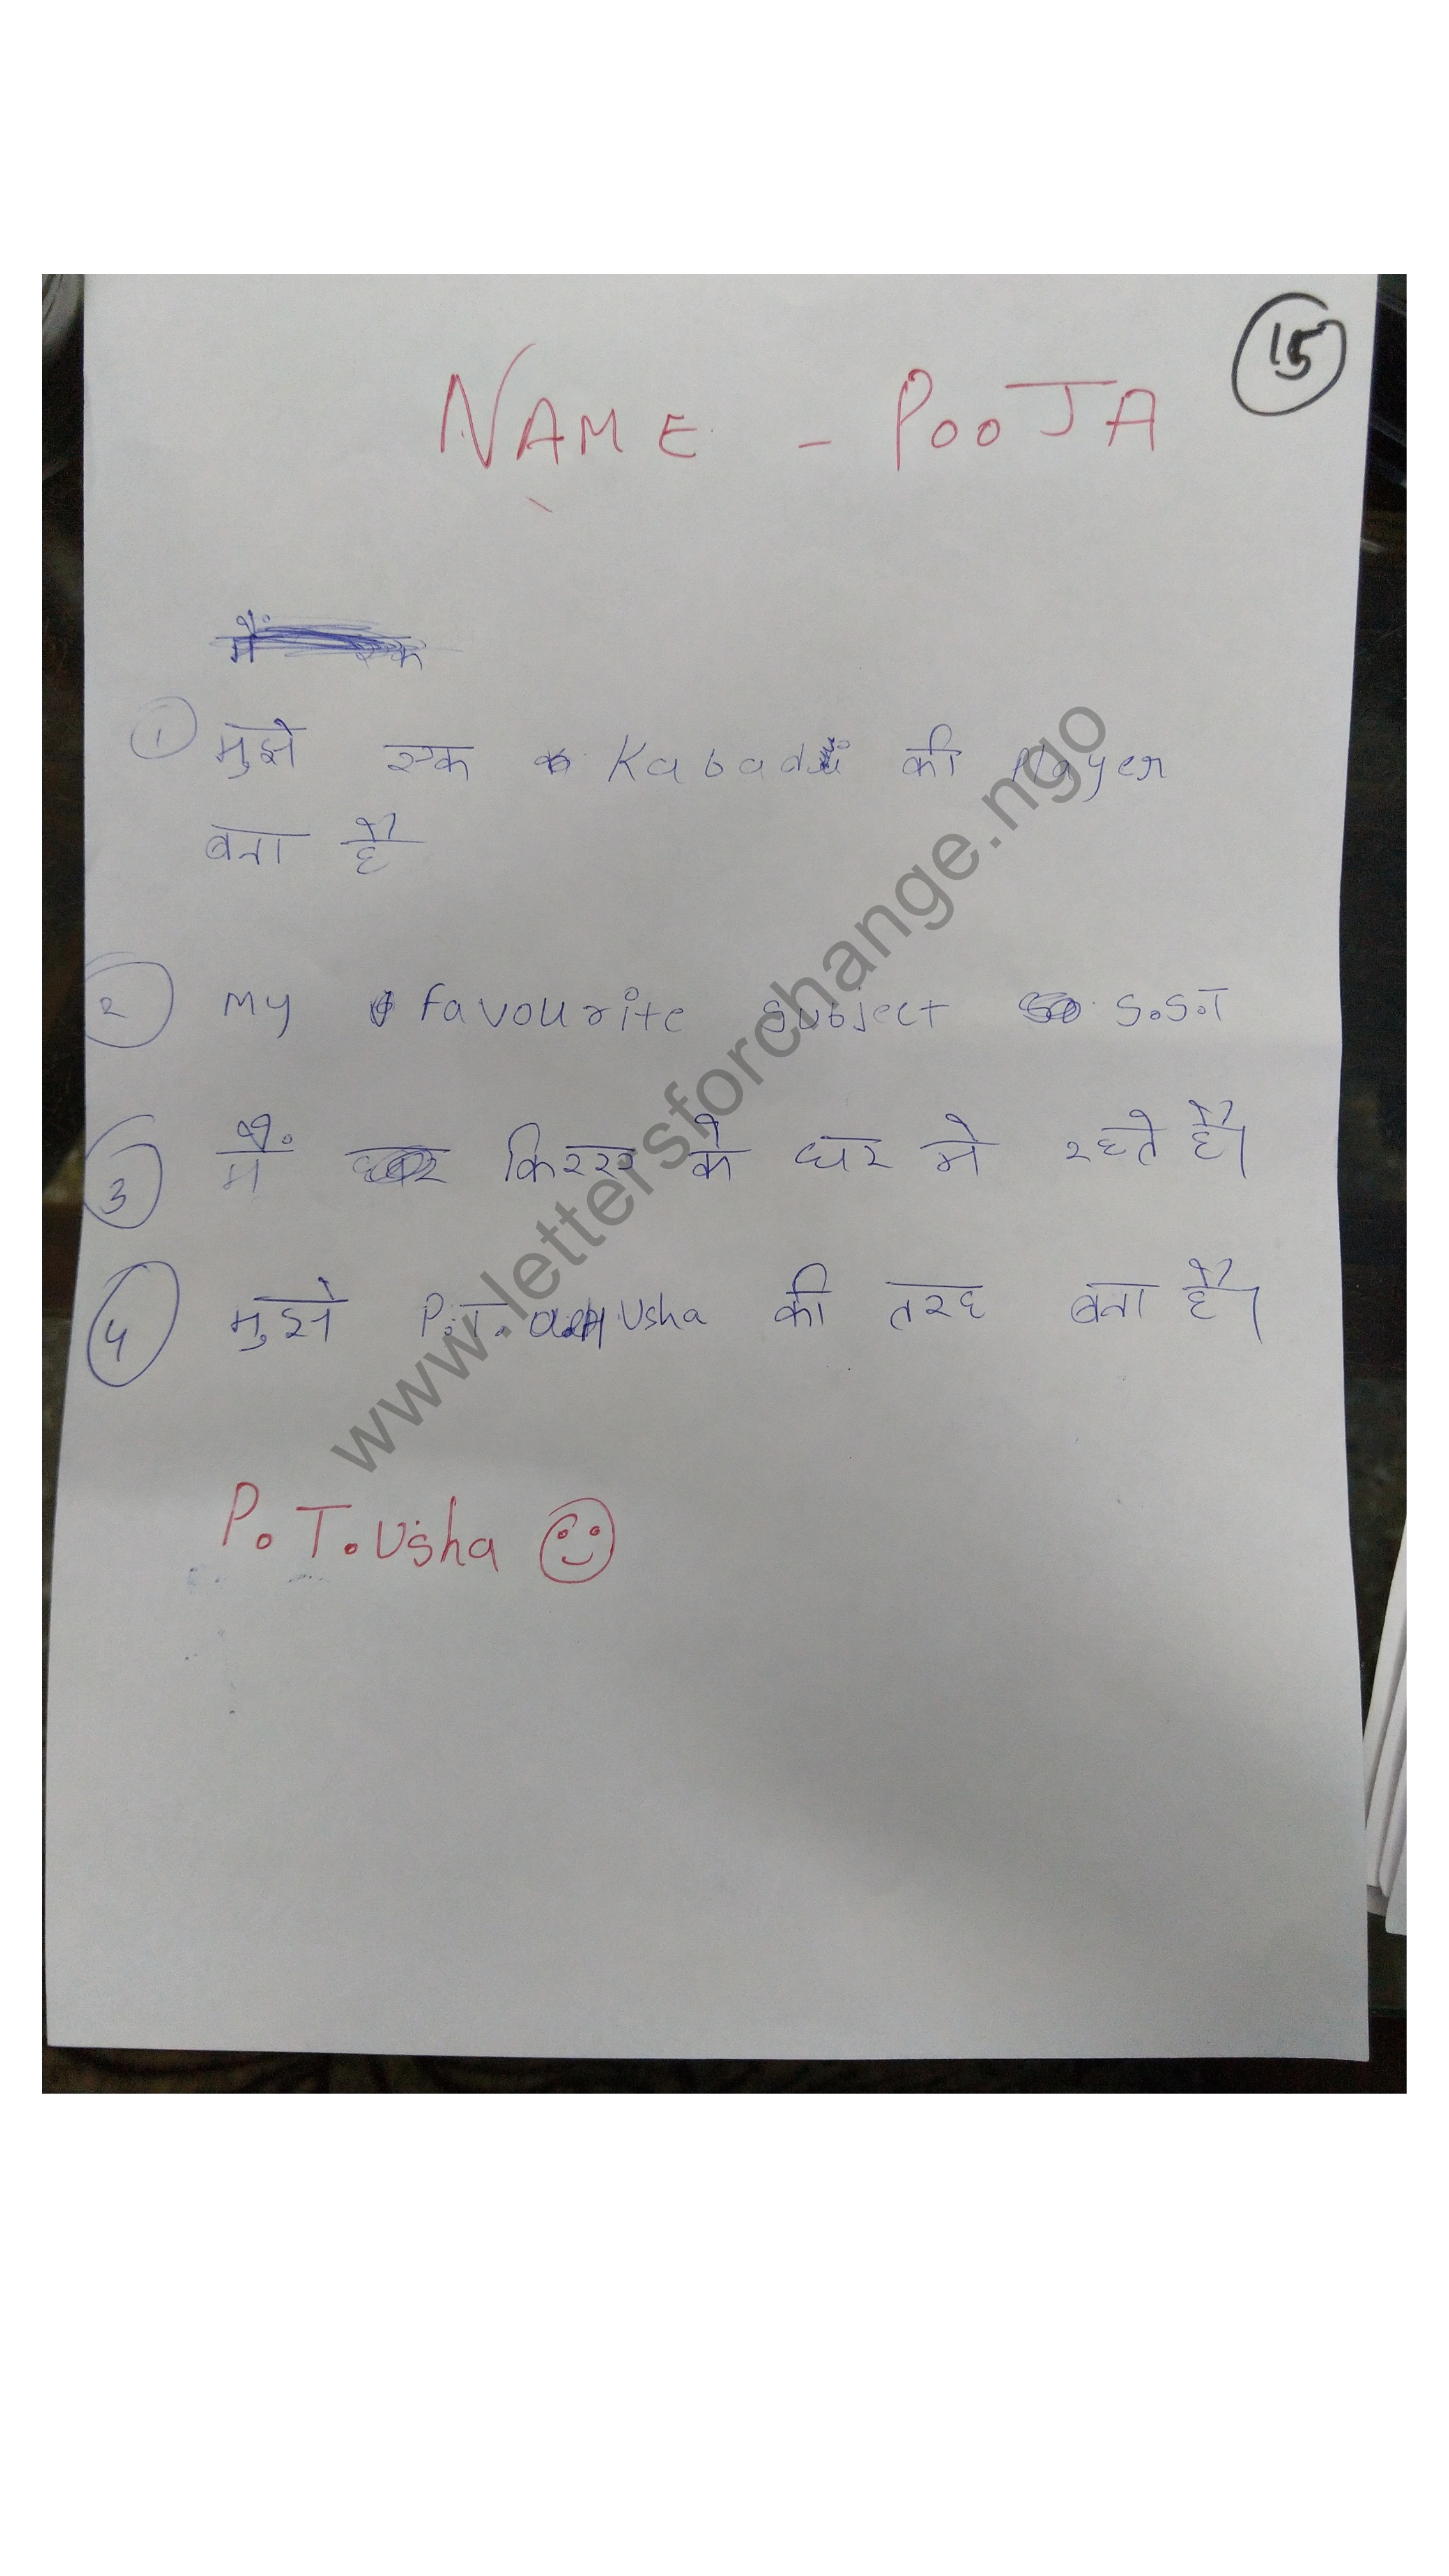 15
NAME - POOJA
मैं एक
1 मुझे एक Kabadi की Player
बना है
2 My favourite Subject S.S.T
3 मैं किरर के घर मे रहते है।
4 मुझे P.T. Usha की तरह बना है।
P.T.Usha
www.lettersforchange.ngo